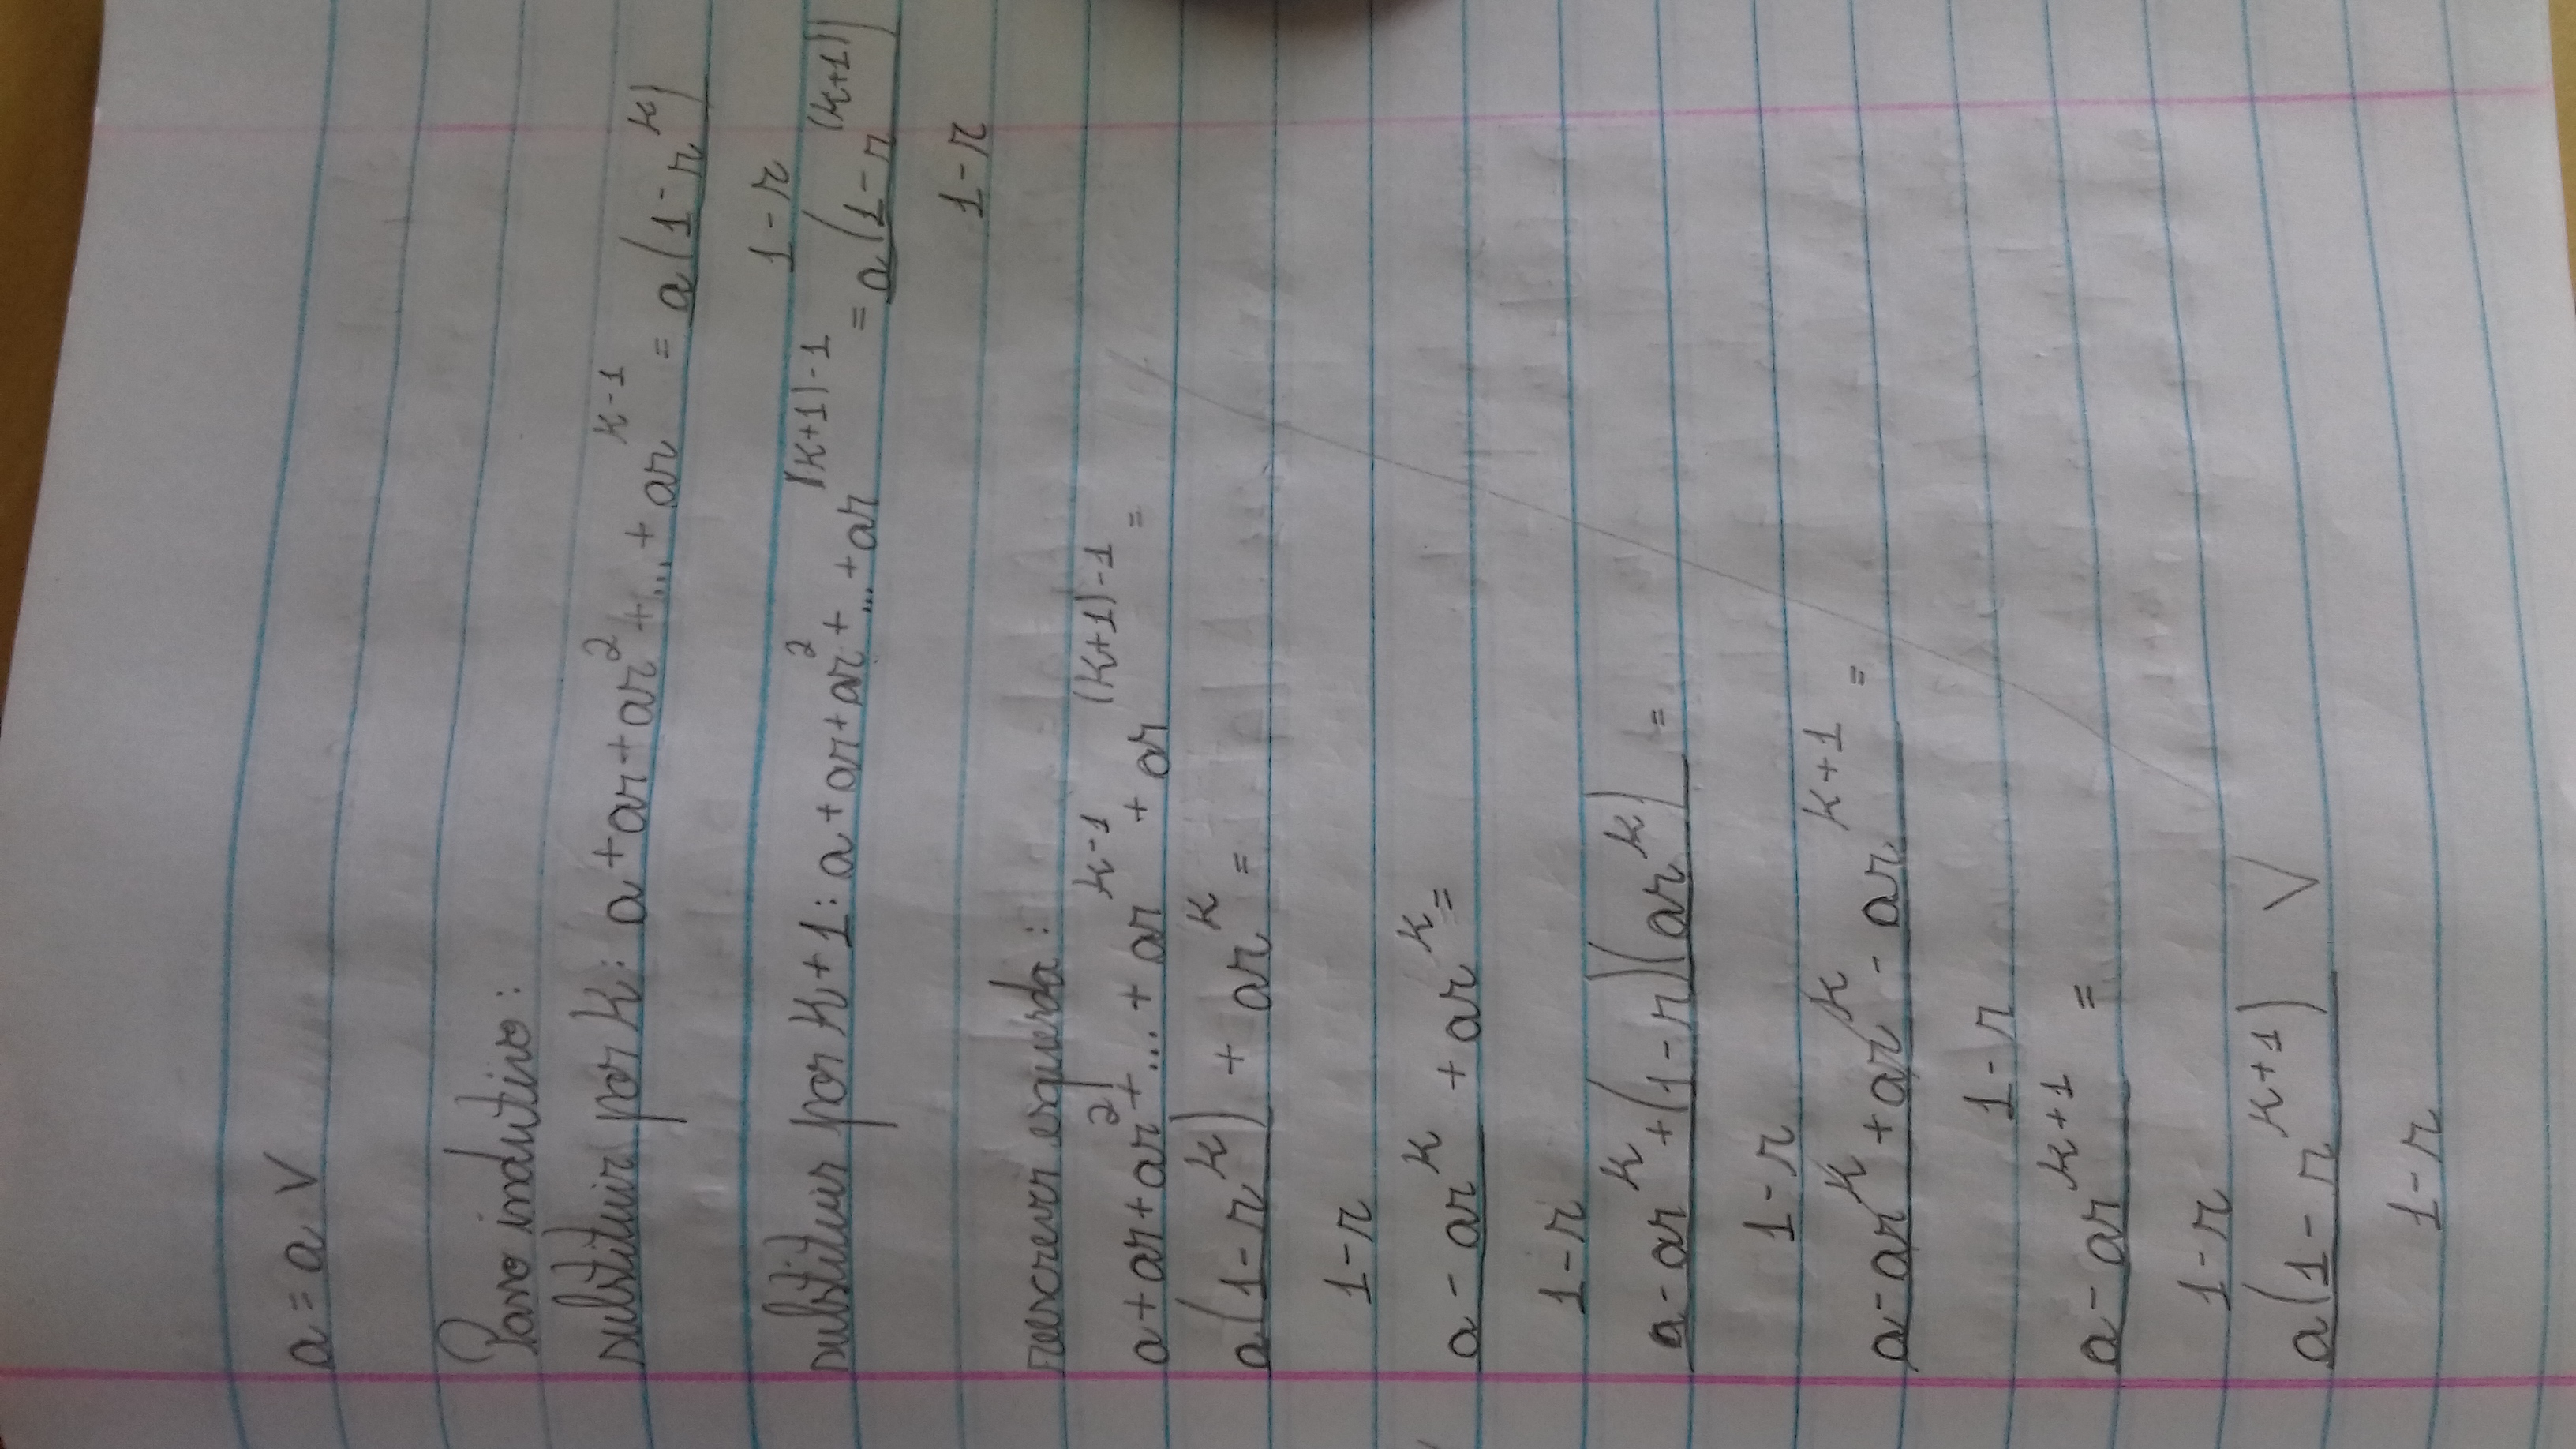 a = a V
Passo indutivo:
substituir por k: a + ar + ar² + ... + ar^(k-1) = a(1-r^k)
1-r
substituir por k+1: a + ar + ar² + ... + ar^((k+1)-1) = a(1-r^(k+1))
1-r
reescrever esquerda:
a + ar + ar² + ... + ar^(k-1) + ar^((k+1)-1) =
a(1-r^k) + ar^k =
1-r
a - ar^k + ar^k =
1-r
a - ar^k + (1-r)(ar^k) =
1-r
a - ar^k + ar^k - ar^(k+1) =
1-r
a - ar^(k+1) =
1-r
a(1-r^(k+1)) V
1-r